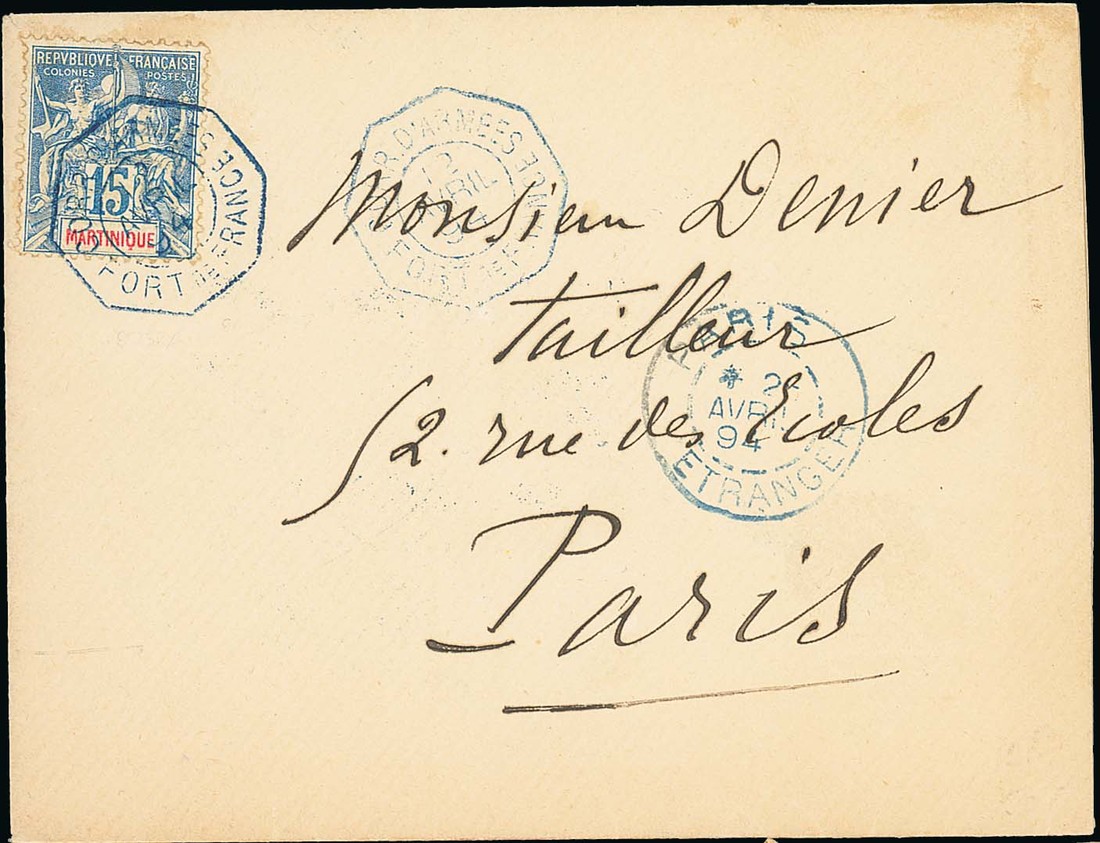 REPVBLIQVE FRANÇAISE
COLONIES POSTES
15
MARTINIQUE
COR. D'ARMEES
FORT DE FRANCE
COR. D'ARMEES
12
AVRIL
94
FORT DE FRANCE
Monsieur Denier
tailleur
52. rue des Ecoles
Paris
PARIS
AVRIL
94
ETRANGER